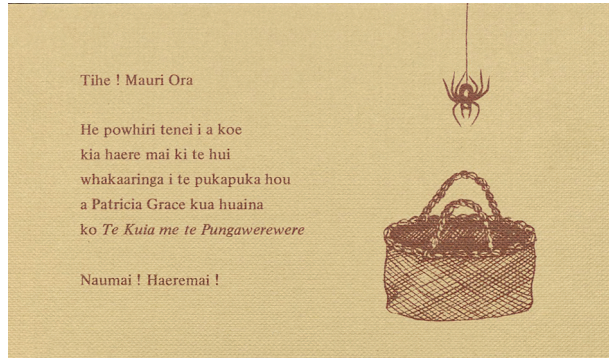 Tihe ! Mauri Ora
He powhiri tenei i a koe
kia haere mai ki te hui
whakaaringa i te pukapuka hou
a Patricia Grace kua huaina
ko Te Kuia me te Pungawerewere
Naumai ! Haeremai !